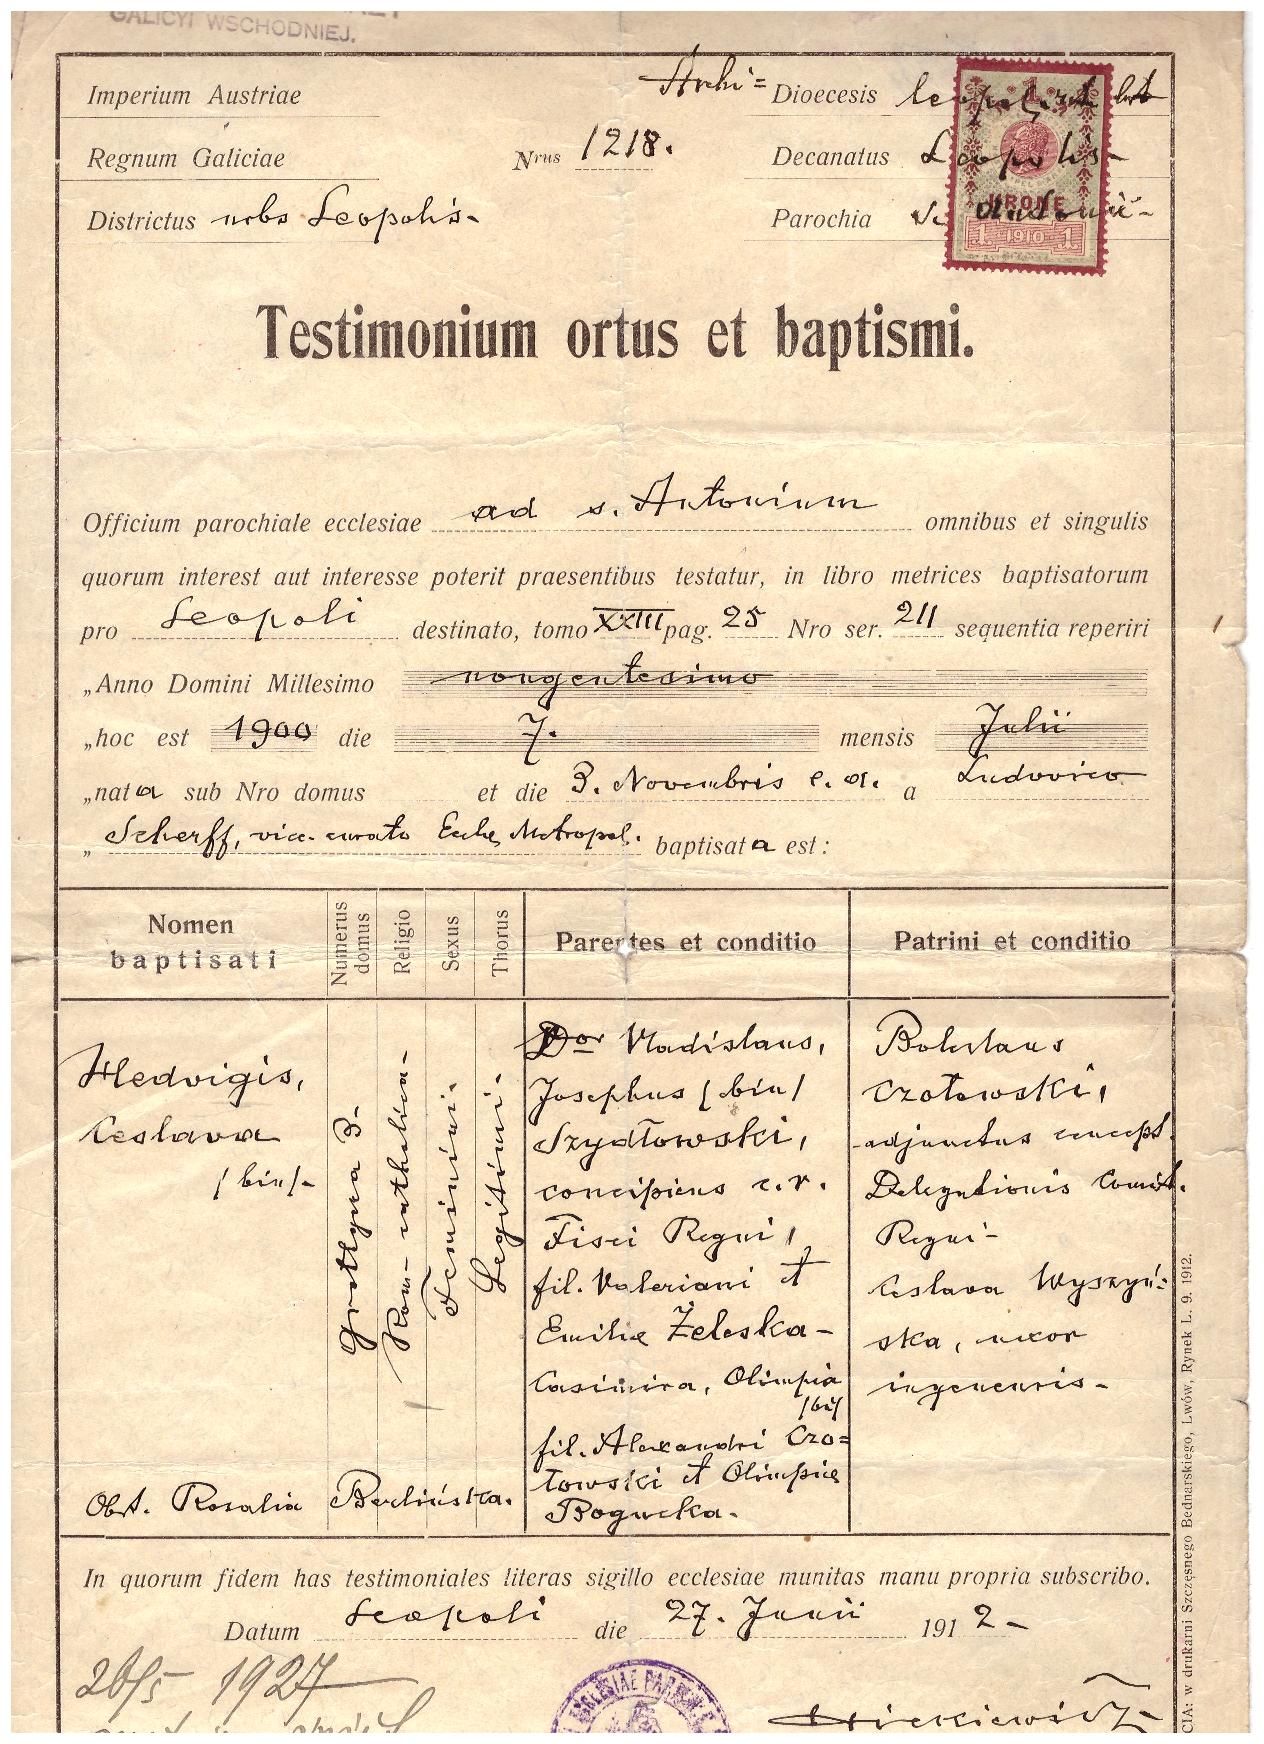 GALICYI WSCHODNIEJ.
Imperium Austriae
Archi= Dioecesis
Regnum Galiciae
Nrus 1218.
Decanatus Leopolis-
Districtus urbs Leopolis-
Parochia s. Antonii-
1
KRONE
1 1910 1
Testimonium ortus et baptismi.
Officium parochiale ecclesiae ad s. Antonium omnibus et singulis
quorum interest aut interesse poterit praesentibus testatur, in libro metrices baptisatorum
pro Leopoli destinato, tomo XXIII pag. 25 Nro ser. 211 sequentia reperiri
„Anno Domini Millesimo nongentesimo
„hoc est 1900 die 7. mensis Julii
„nata sub Nro domus et die 3. Novembris e. a. a Ludovico
„Scherff, vice-curato Eccle Metropol. baptisata est:
Nomen baptisati
Numerus domus
Religio
Sexus
Thorus
Parentes et conditio
Patrini et conditio
Hedvigis,
Ceslava
/bin/-
3.
Rom-catholica-
Feminini.
Legitimi.
Dor Vladislaus,
Josephus /bin/
Szydłowski,
concipiens c.r.
Fisci Regni,
fil. Valeriani et
Emiliæ Żeleska-
Casimira, Olimpia
/bi/
fil. Alexandri Czo=
łowski et Olimpiæ
Bogucka.
Boleslaus
Czołowski,
adjunctus concept.
Delegationis Comit.
Regni-
Ceslava Wyszyń=
ska, uxor
ingeneris-
Obst. Rosalia Berlińska.
In quorum fidem has testimoniales literas sigillo ecclesiae munitas manu propria subscribo.
Datum Leopoli die 27. Junii 1912-
26/5 1927
ECCLESIAE
CIA: w drukarni Szczęsnego Bednarskiego, Lwów, Rynek L. 9. 1912.